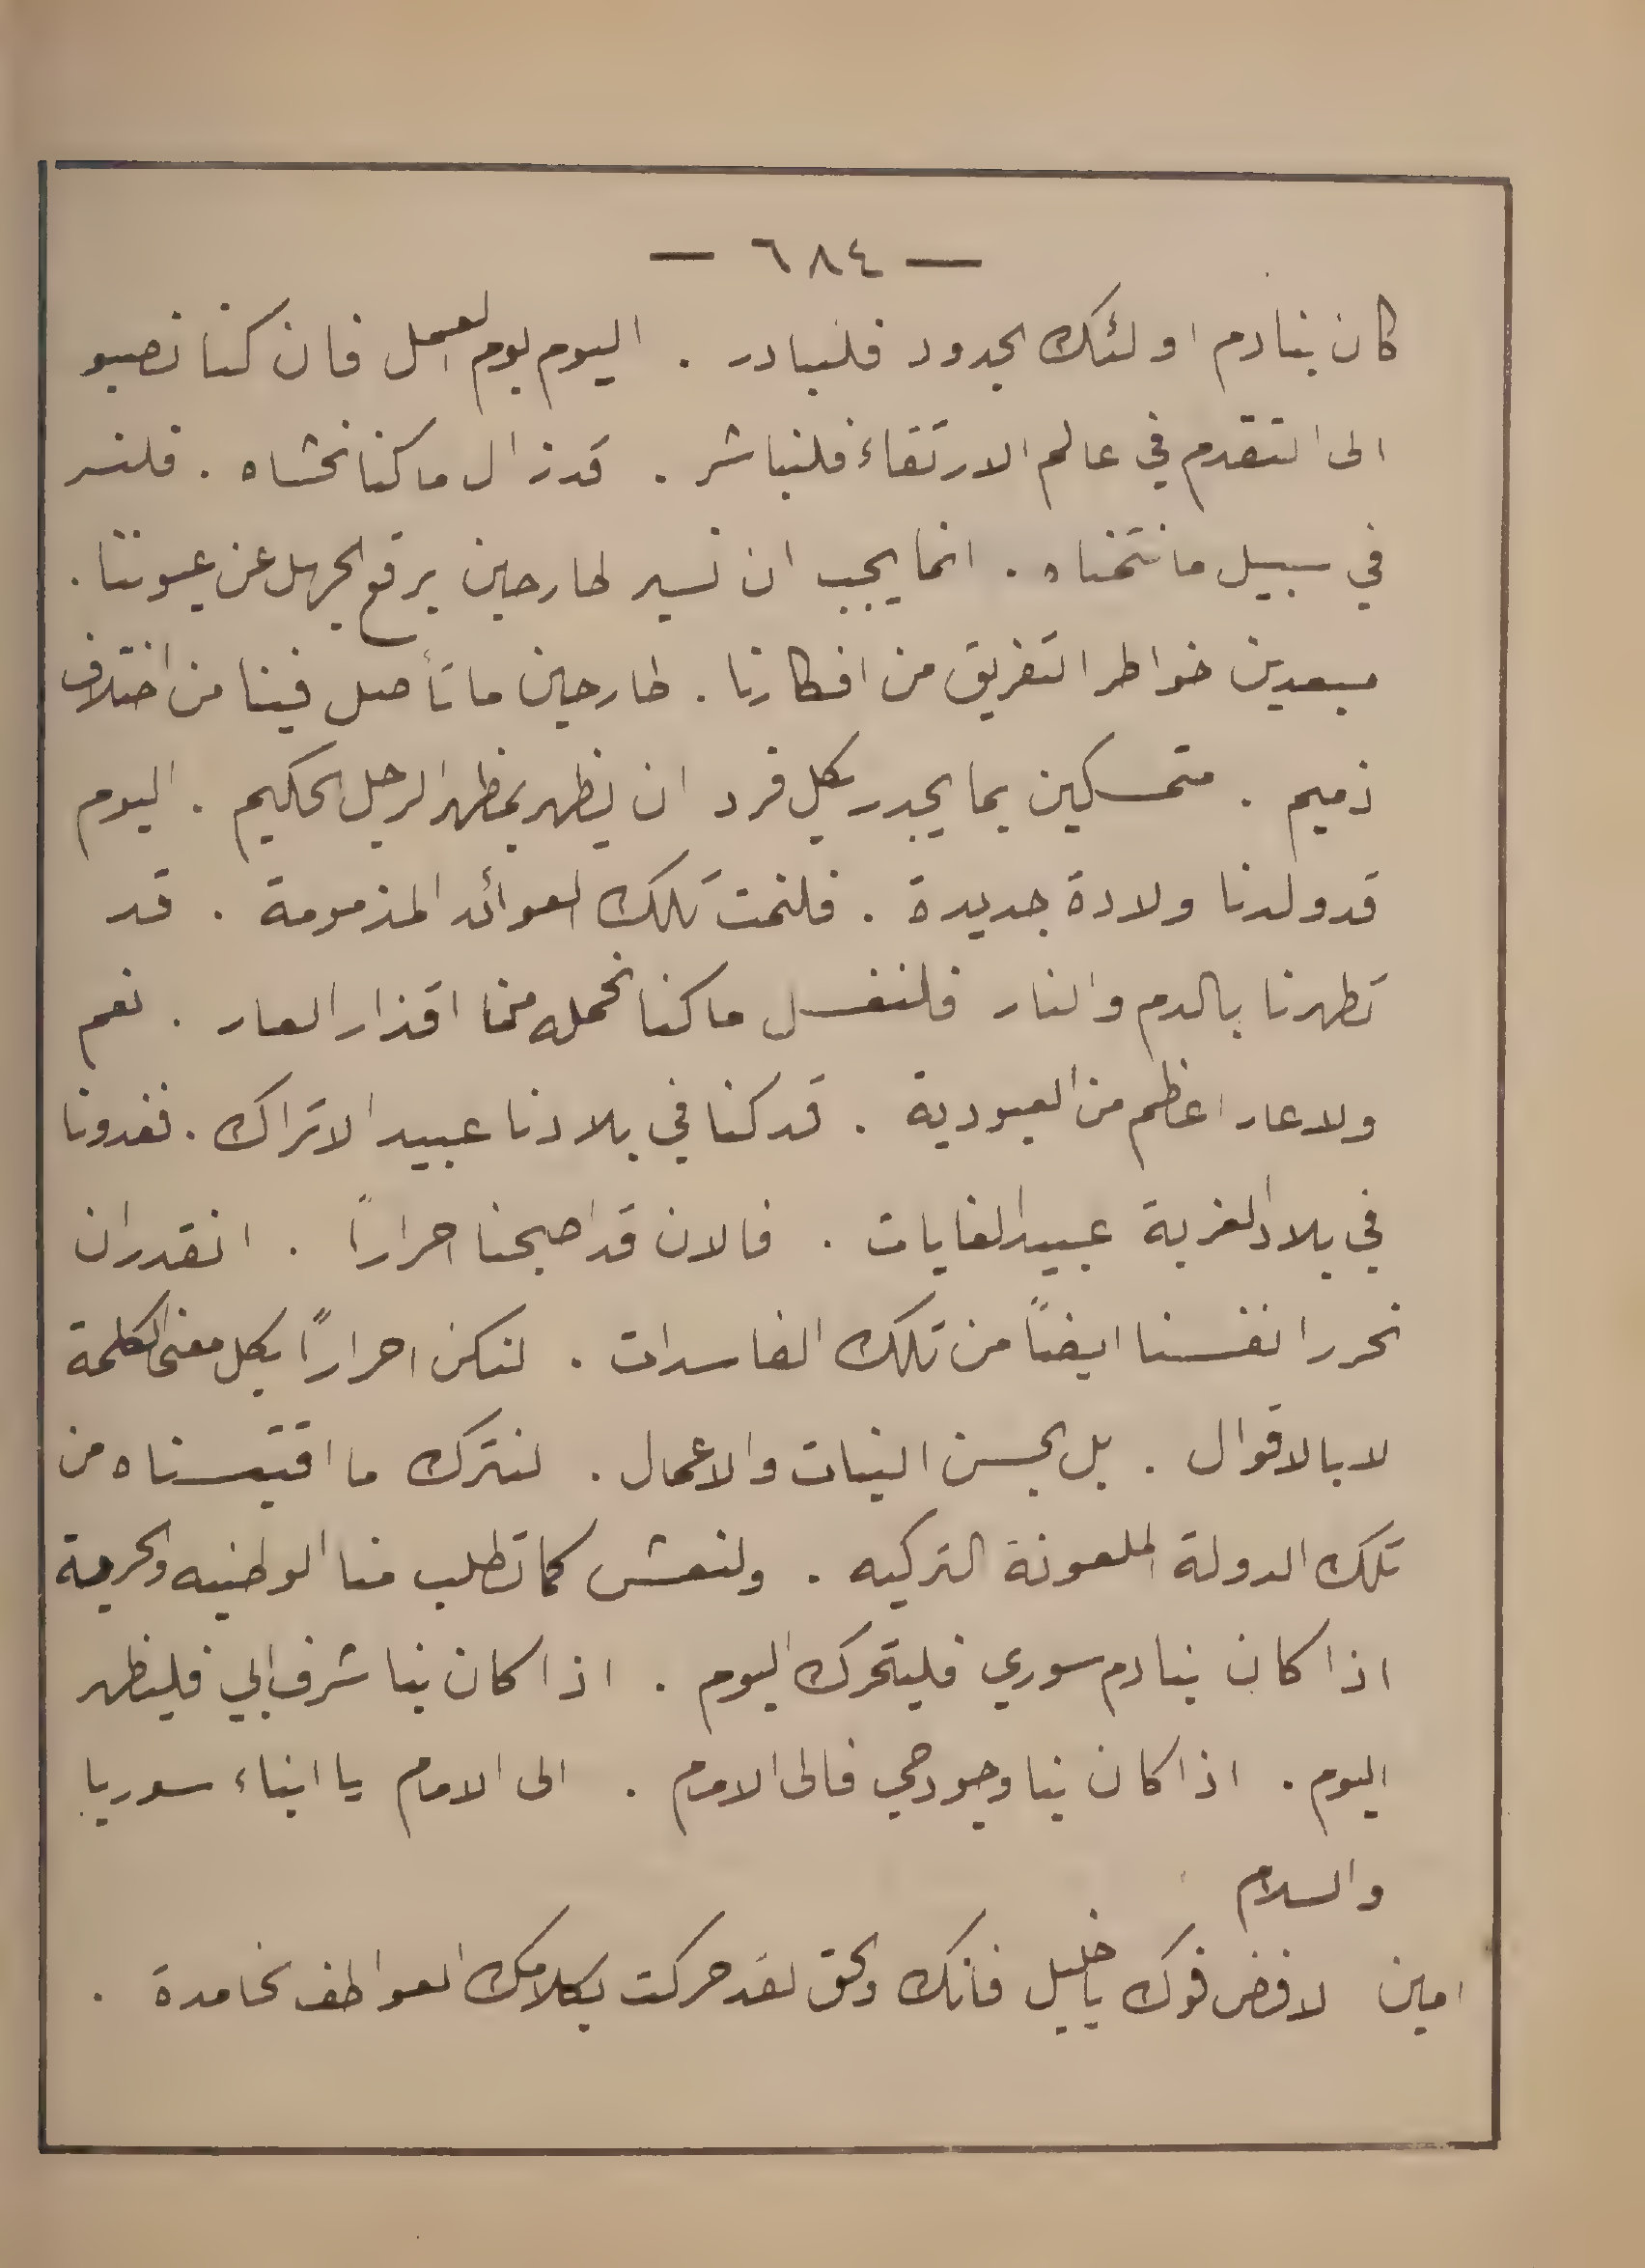 — ٦٨٤ —
كان بنا دم اولئك الجدود فلنبادر . اليوم يوم العمل فان كنا نصبو
الى التقدم في عالم الارتقاء فلنباشر . قد زال ما كنا نخشاه . فلنسر
في سبيل ما نتمناه . انما يجب ان نسير طارحين برقع الجهل عن عيوننا .
مبعدين خواطر التفريق من افكارنا . طارحين ما تأصل فينا من اختلاف
ذميم . متمسكين بما يجدر بكل فرد ان يظهر بمظهر الرجل الحكيم . اليوم
قد ولدنا ولادة جديدة . فلنمت تلك العوائد المذمومة . قد
تطهرنا بالدم والنار فلنغسل ما كنا نحمله من اقذار العار . نعم
ولا عار اعظم من العبودية . قد كنا في بلادنا عبيد الاتراك . فغدونا
في بلاد الغربة عبيد الغايات . فالان قد اصبحنا احراراً . انقدر ان
نحرر انفسنا ايضاً من تلك الفاسدات . لنكن احراراً بكل معنى الكلمة
لا بالاقوال . بل بحسن النيات والاعمال . لنترك ما اقتبسناه من
تلك الدولة الملعونة التركيه . ولنعش كما تطلب منا الوطنيه والحرية
اذا كان بنا دم سوري فليتحرك اليوم . اذا كان بنا شرف ابي فليظهر
اليوم . اذا كان بنا وجود حي فالى الامام . الى الامام يا ابناء سوريا
والسلام
امين لا فض فوك يا خليل فانك والحق لقد حركت بكلامك العواطف الخامدة .